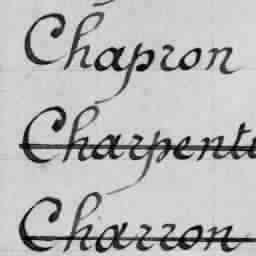 Chapron
Charpent
Charron